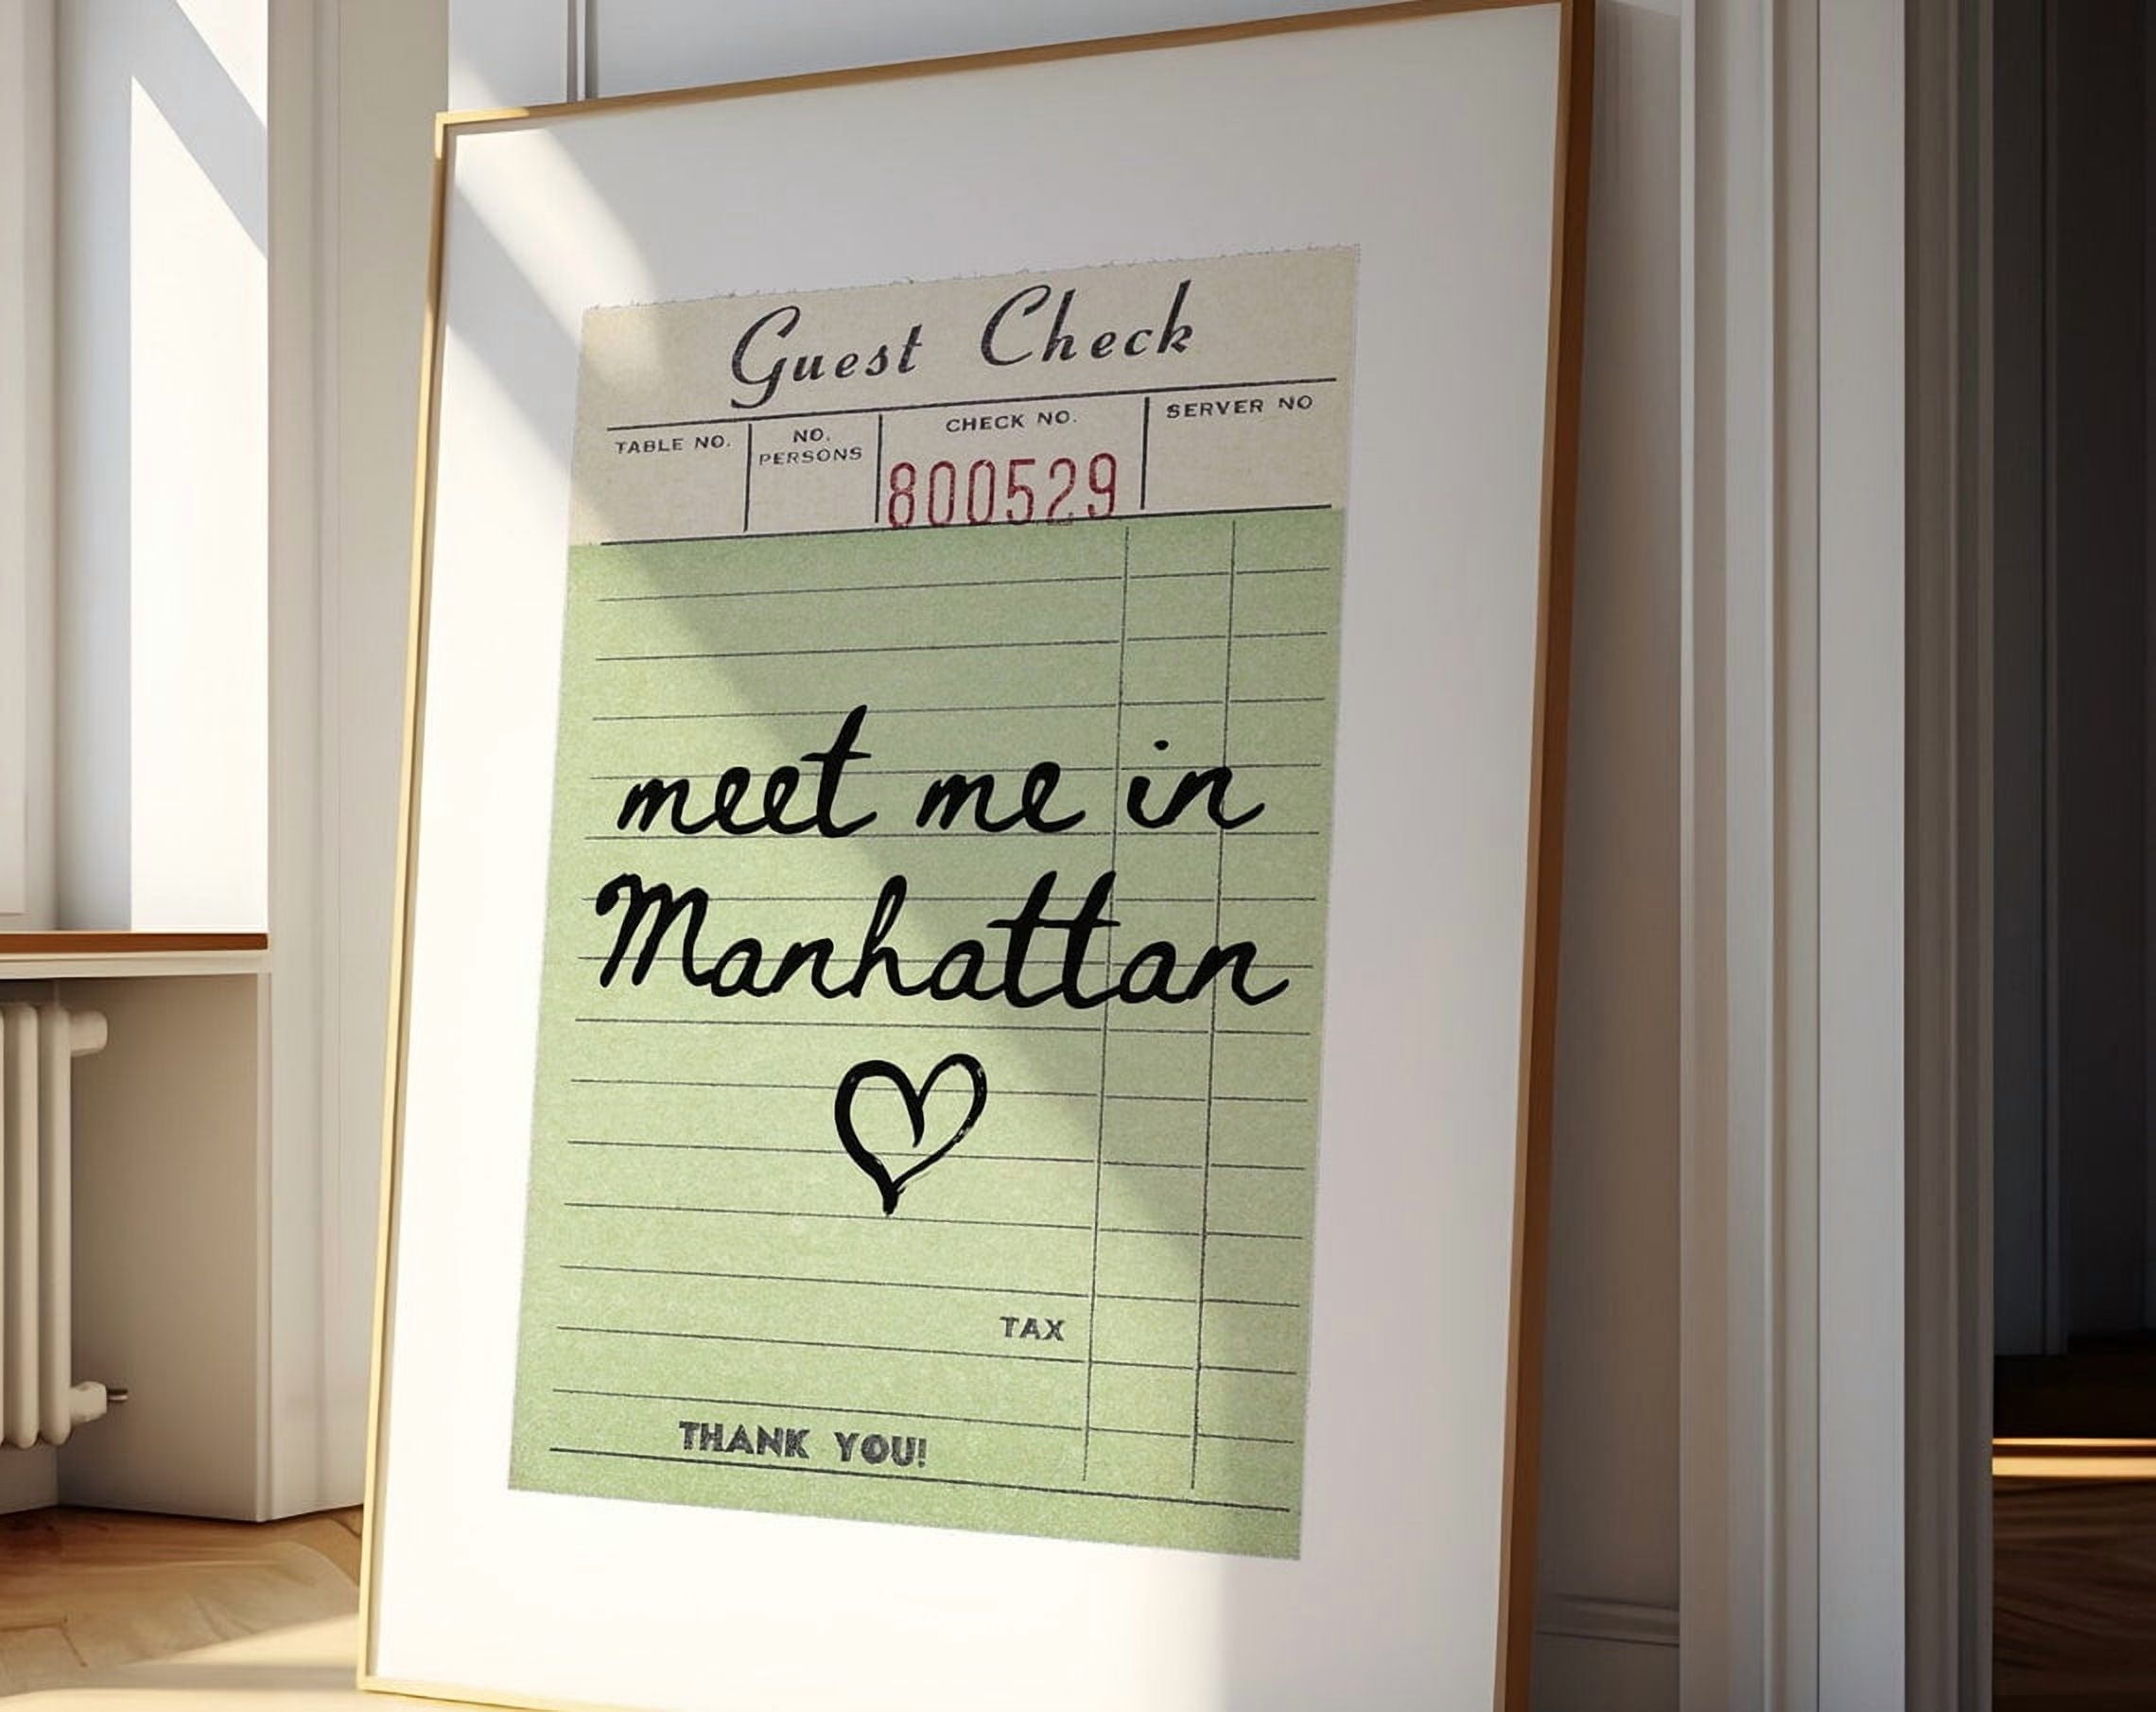 Guest Check
TABLE NO.
NO.
PERSONS
CHECK NO.
800529
SERVER NO
meet me in
Manhattan
TAX
THANK YOU!